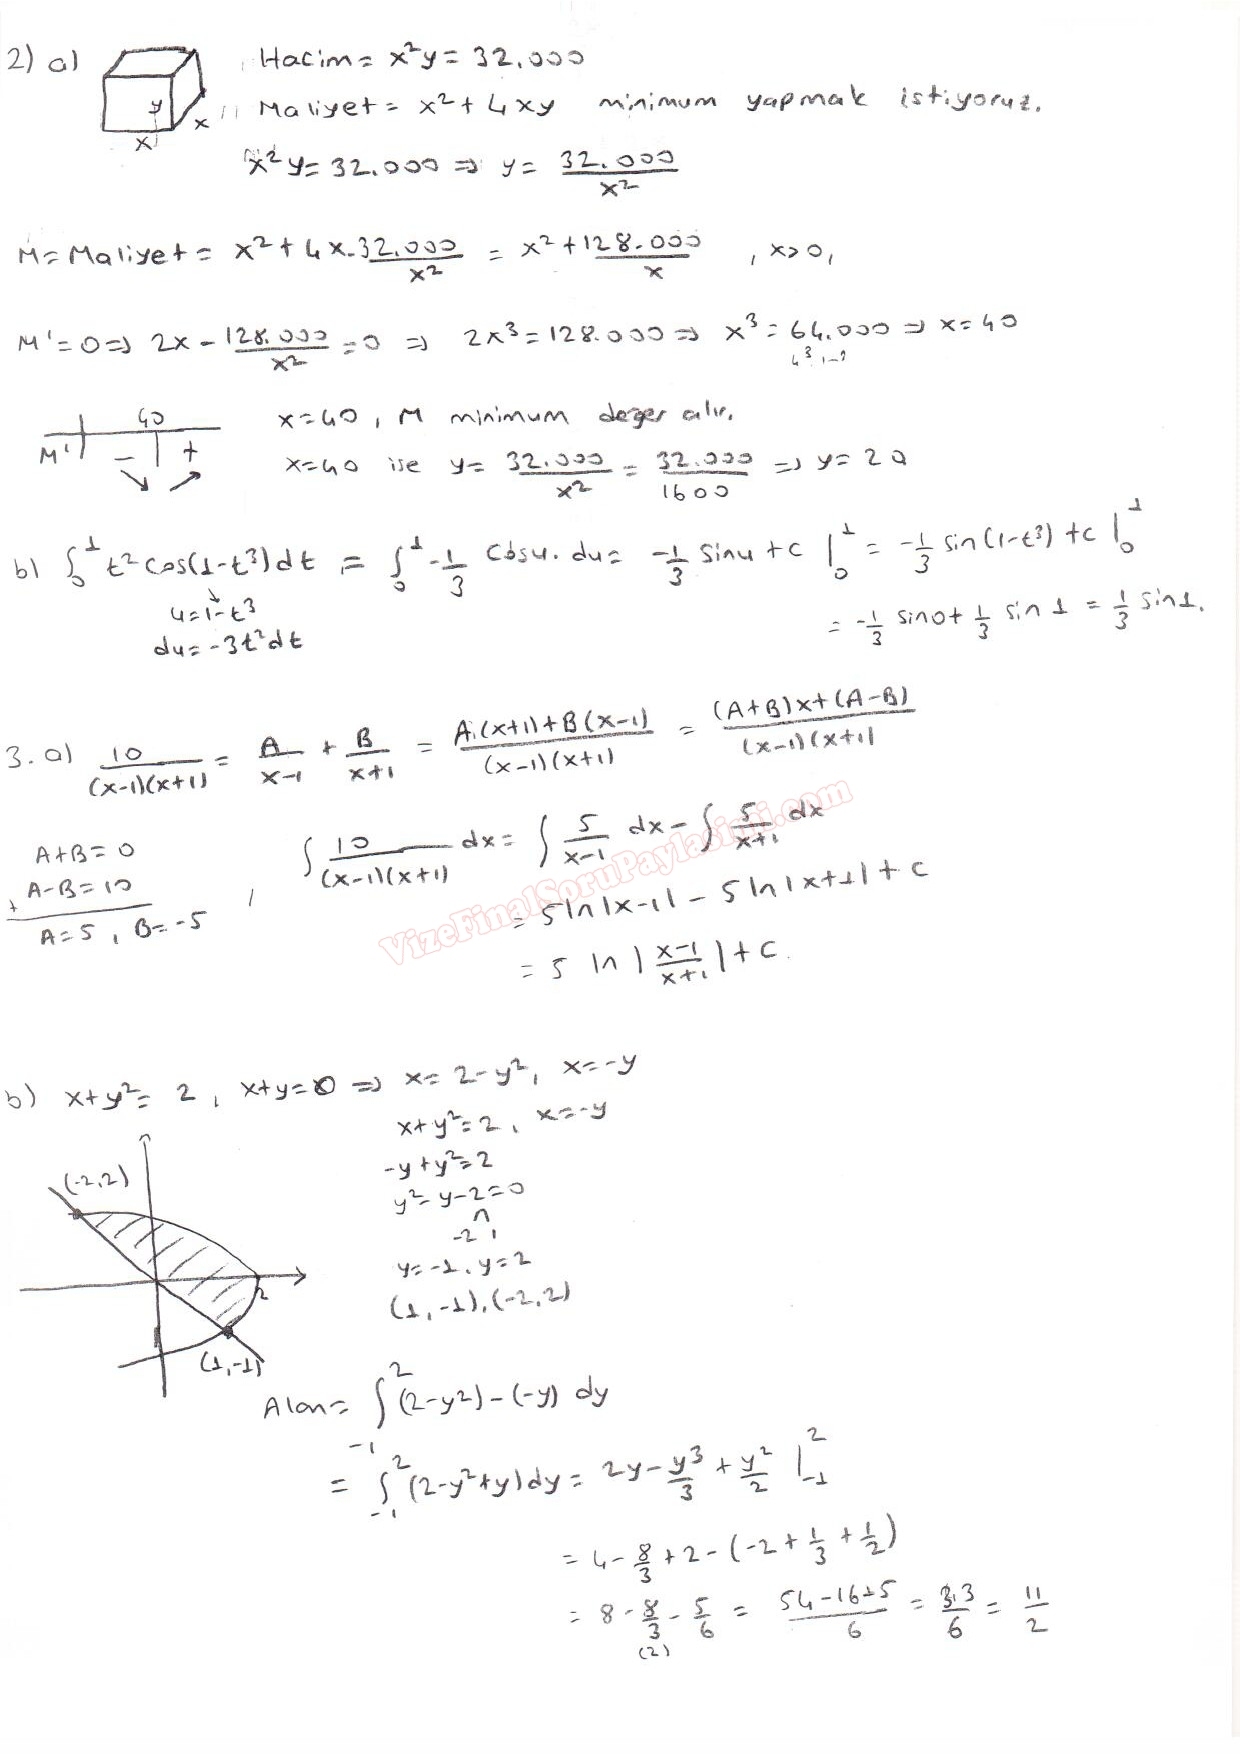 2) a) Hacim = x²y = 32.000
Maliyet = x² + 4xy minimum yapmak istiyoruz.
y
x
x
x²y = 32.000 ⇒ y = 32.000/x²
M = Maliyet = x² + 4x.32.000/x² = x² + 128.000/x , x>0,
M' = 0 ⇒ 2x - 128.000/x² = 0 ⇒ 2x³ = 128.000 ⇒ x³ = 64.000 ⇒ x = 40
40
M' - +
x = 40, M minimum değer alır.
x = 40 ise y = 32.000/x² = 32.000/1600 ⇒ y = 20
b) ∫₀¹ t² cos(1-t³) dt = ∫₀¹ -1/3 cosu. du = -1/3 sinu + c |₀¹ = -1/3 sin(1-t³) + c |₀¹
u = 1-t³
du = -3t²dt
= -1/3 sin0 + 1/3 sin 1 = 1/3 sin1.
3. a) 10/((x-1)(x+1)) = A/(x-1) + B/(x+1) = (A.(x+1) + B(x-1))/((x-1)(x+1)) = ((A+B)x + (A-B))/((x-1)(x+1))
A+B = 0
+ A-B = 10
A = 5, B = -5
, ∫ 10/((x-1)(x+1)) dx = ∫ 5/(x-1) dx - ∫ 5/(x+1) dx
= 5 ln|x-1| - 5 ln|x+1| + c
= 5 ln |(x-1)/(x+1)| + c.
VizeFinalSoruPaylasimi.com
b) x+y² = 2, x+y = 0 ⇒ x = 2-y², x = -y
x+y² = 2, x = -y
-y+y² = 2
y²-y-2 = 0
-2 1
y = -1, y = 2
(1,-1), (-2,2)
(-2,2)
2
(1,-1)
Alan = ∫₋₁² (2-y²) - (-y) dy
= ∫₋₁² (2-y²+y) dy = 2y - y³/3 + y²/2 |₋₁²
= 4 - 8/3 + 2 - (-2 + 1/3 + 1/2)
= 8 - 8/3 - 5/6 = (54-16+5)/6 = 33/6 = 11/2
(2)